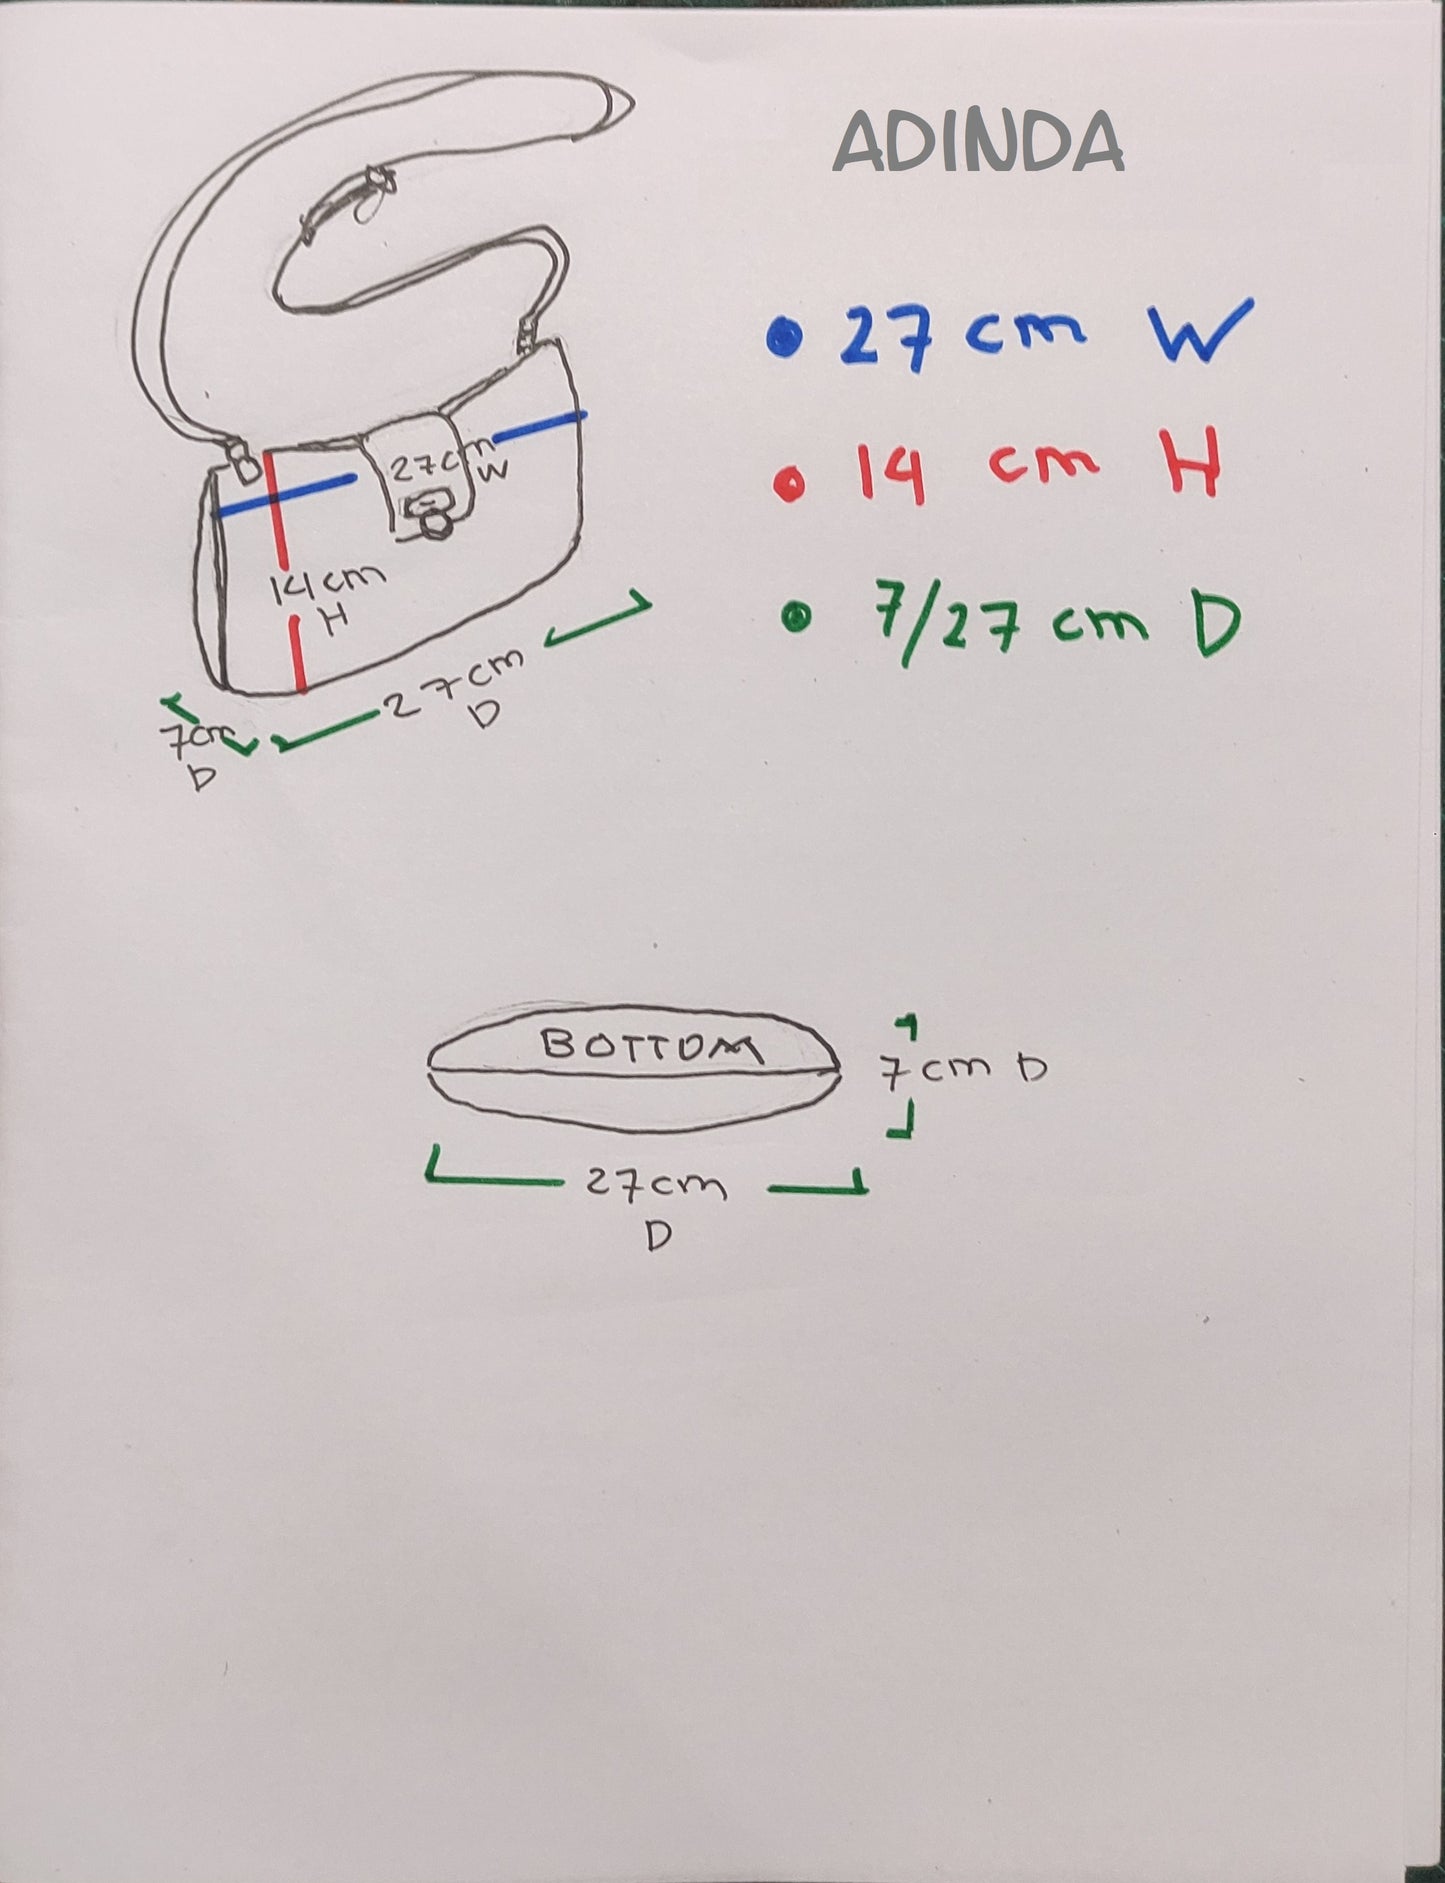 ADINDA
27 cm W
14 cm H
7/27 cm D
27cm
W
14cm
H
27cm
D
7cm
D
BOTTOM
7cm D
27cm
D